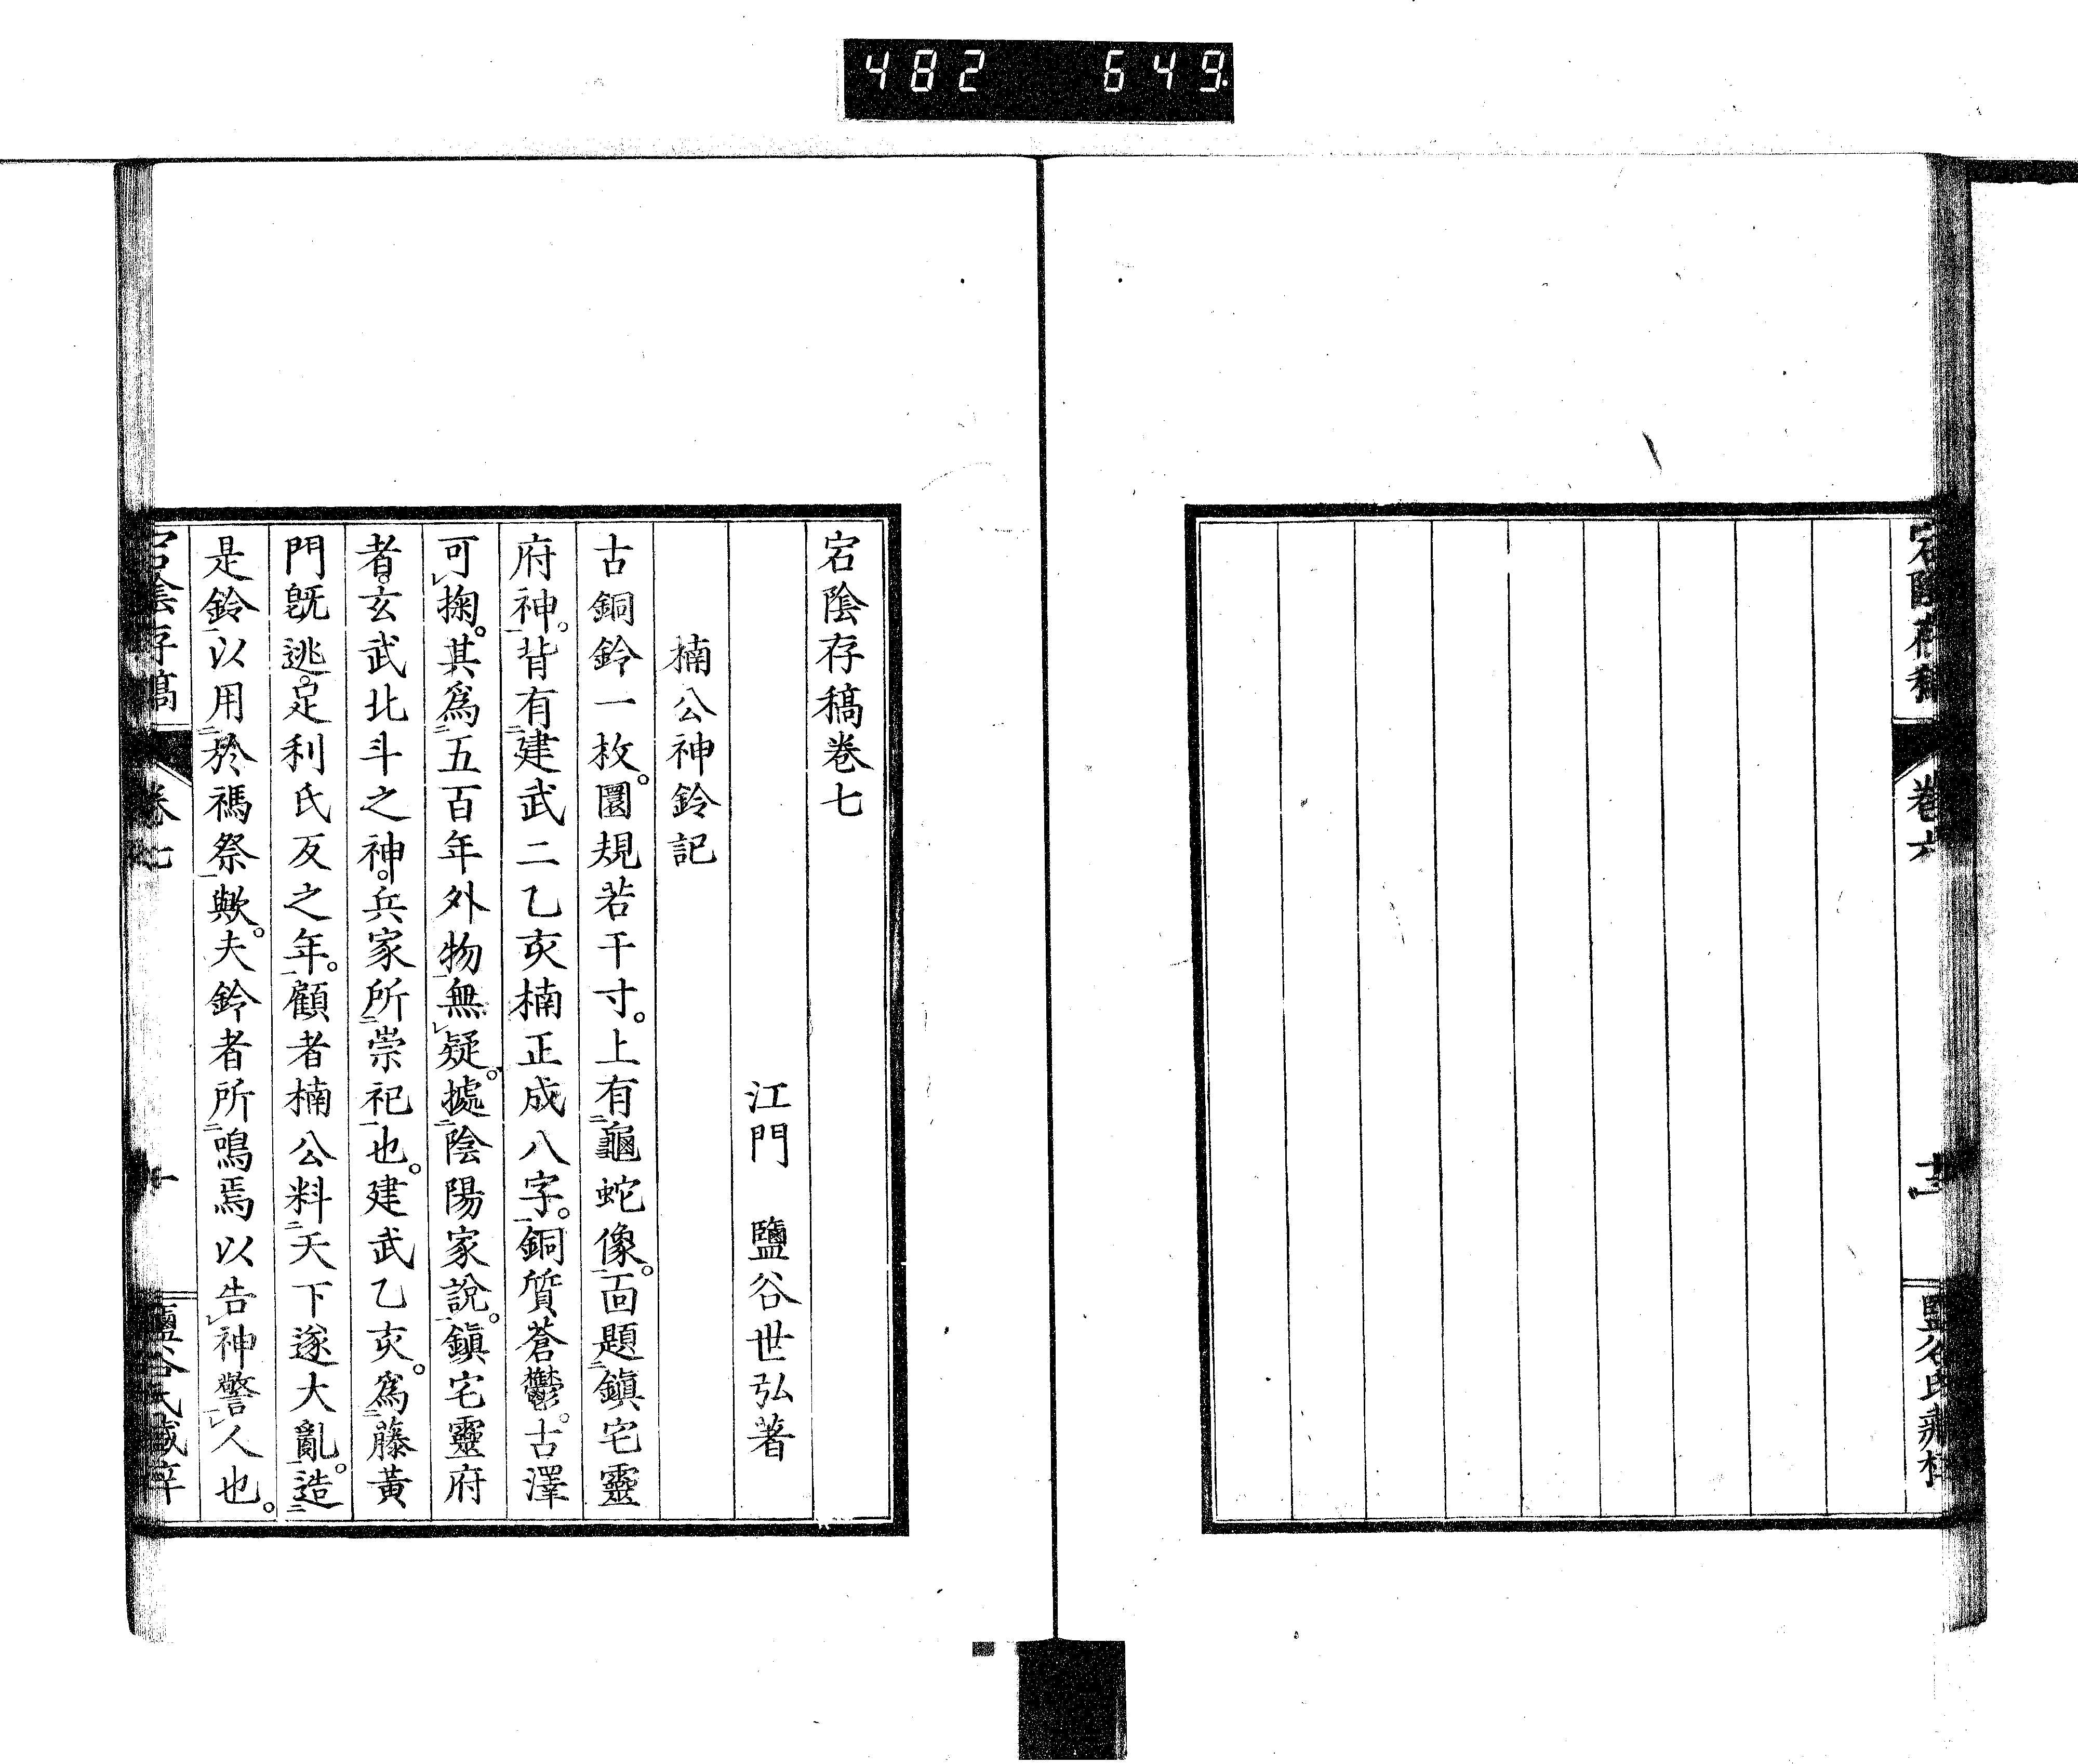 482 649
宕陰存稿
卷六
鹽谷氏藏梓
宕陰存稿卷七
江門 鹽谷世弘著
楠公神鈴記
古銅鈴一枚。圜規若干寸。上有龜蛇像。面題鎭宅靈
府神。背有建武二乙亥楠正成八字。銅質蒼鬱。古澤
可掬。其爲五百年外物無疑。據陰陽家說。鎭宅靈府
者。玄武北斗之神。兵家所崇祀也。建武乙亥。爲藤黃
門旣逃。足利氏反之年。顧者楠公料天下遂大亂。造
是鈴以用於禡祭歟。夫鈴者所鳴焉以告神警人也。
宕陰存稿
卷七
一
鹽谷氏藏梓